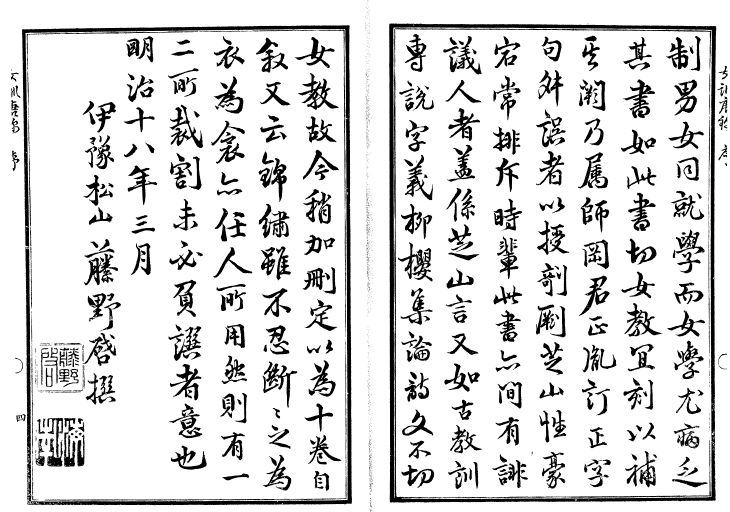 制男女同就學而女學尤病乏
其書如此書切女教宜刻以補
其闕乃属師岡君正胤訂正字
句舛誤者以授剞劂芝山性豪
宕常排斥時輩此書亦間有誹
議人者蓋係芝山言又如古教訓
專說字義柳櫻集論詩文不切
女教故今稍加刪定以為十卷自
叙又云錦繡雖不忍斷〻之為
衣為衾亦任人所用然則有一
二所裁割未必負譔者意也
明治十八年三月
伊豫松山藤野啓撰
藤野
啓印
女訓 序
四